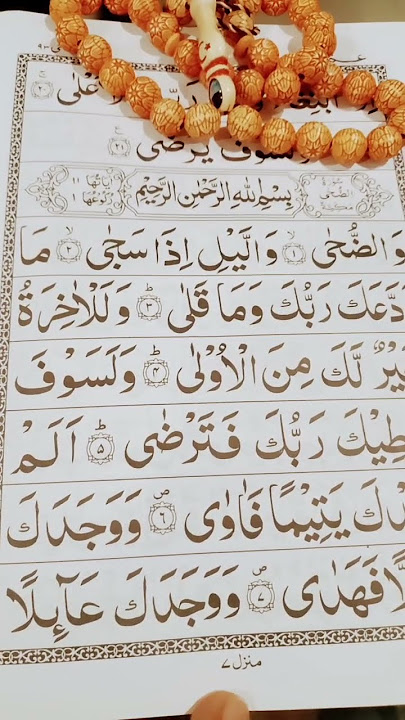 سَوْفَ يَرْضٰى ۲۱
سورة الضحى مكية بِسْمِ اللهِ الرَّحْمٰنِ الرَّحِيْمِ آياتها ۱۱ ركوعها ۱
وَالضُّحٰى ۱ وَالَّيْلِ اِذَا سَجٰى ۲ مَا
دَّعَكَ رَبُّكَ وَمَا قَلٰى ۳ وَلَلْاٰخِرَةُ
يْرٌ لَّكَ مِنَ الْاُوْلٰى ۴ وَلَسَوْفَ
طِيْكَ رَبُّكَ فَتَرْضٰى ۵ اَلَمْ
دْكَ يَتِيْمًا فَاٰوٰى ۶ وَوَجَدَكَ
لًّا فَهَدٰى ۷ وَوَجَدَكَ عَآئِلًا
منزل ۷